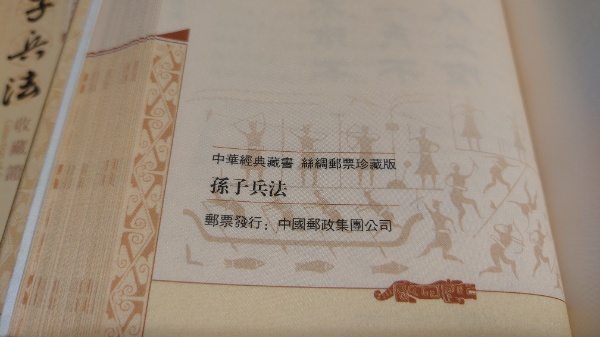 子兵法
收藏證
中華經典藏書 絲綢郵票珍藏版
孫子兵法
郵票發行：中國郵政集團公司